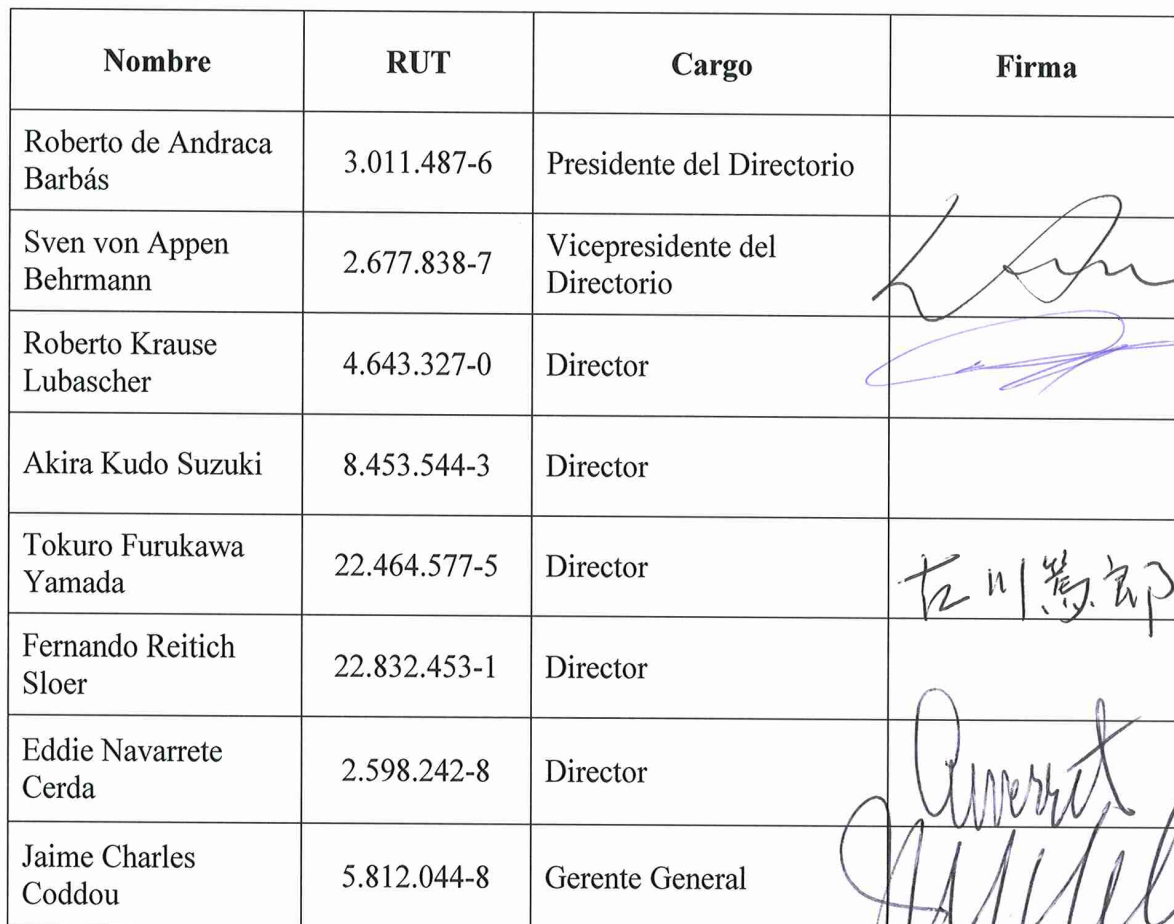 Nombre RUT Cargo Firma
Roberto de Andraca
Barbás 3.011.487-6 Presidente del Directorio
Sven von Appen
Behrmann 2.677.838-7 Vicepresidente del
Directorio
Roberto Krause
Lubascher 4.643.327-0 Director
Akira Kudo Suzuki 8.453.544-3 Director
Tokuro Furukawa
Yamada 22.464.577-5 Director 古川篤郎
Fernando Reitich
Sloer 22.832.453-1 Director
Eddie Navarrete
Cerda 2.598.242-8 Director
Jaime Charles
Coddou 5.812.044-8 Gerente General